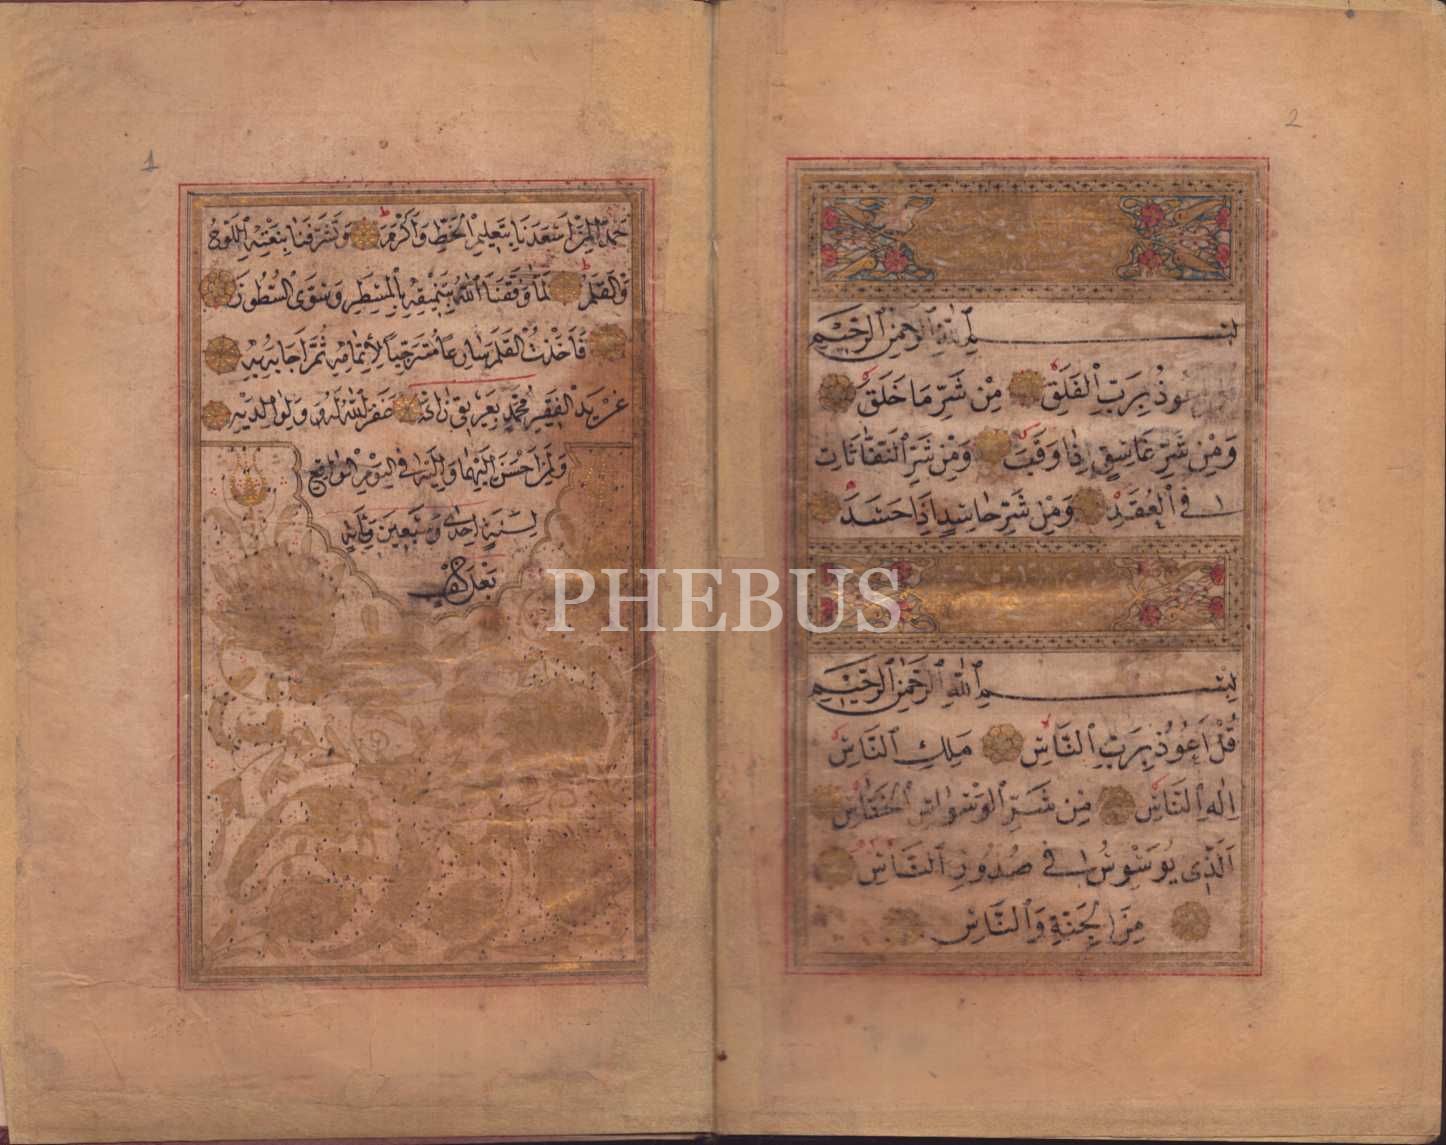 2
بسم الله الرحمن الرحيم
عوذ برب الفلق من شر ما خلق
ومن شر غاسق اذا وقب ومن شر النفاثات
في العقد ومن شر حاسد اذا حسد
بسم الله الرحمن الرحيم
قل اعوذ برب الناس ملك الناس
اله الناس من شر الوسواس الخناس
الذي يوسوس في صدور الناس
من الجنة والناس
1
اسعدنا بتعليم الخط واكرم وتشرفنا اللوح
والقلم لما وفقنا الله بتنميقه بالمسطر وسوى السطور
فاخذت القلم لاتمامه ثم
الفقير محمد غفر الله له ولوالديه
ولمن احسن اليهما واليه في اليوم
لسنة احدى وسبعين ومايه
بعد الف
PHEBUS